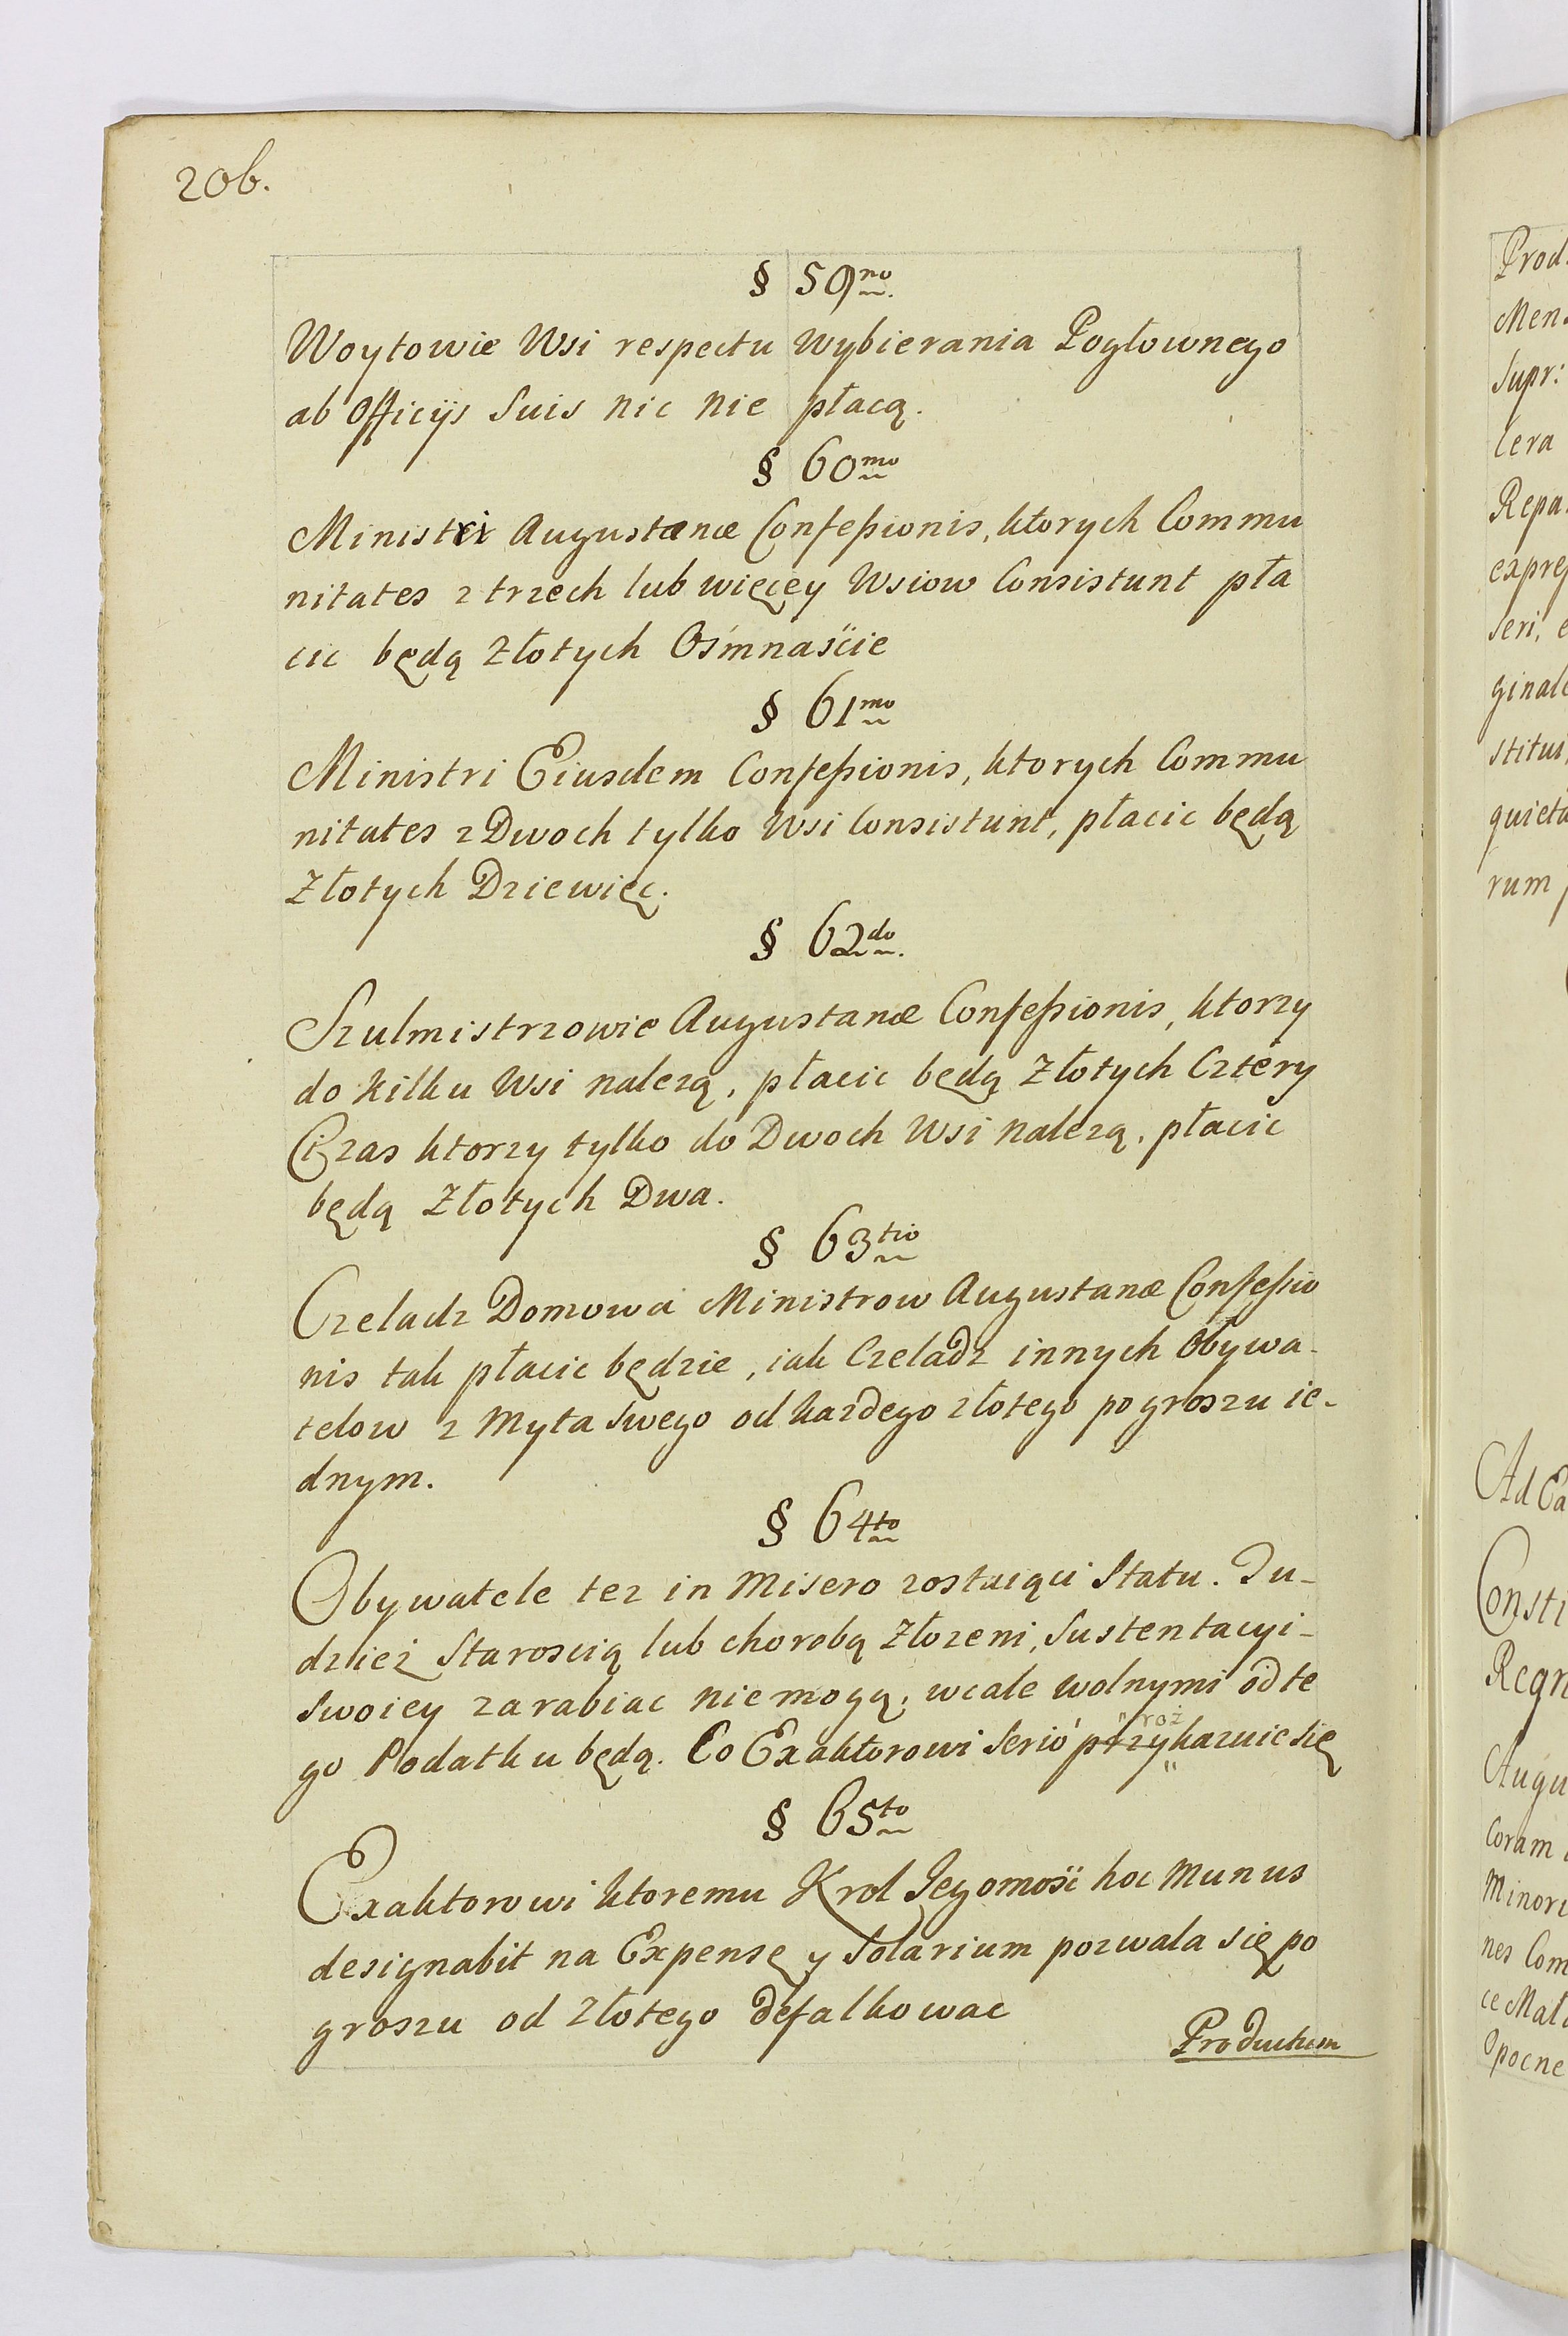 206.
§ 59no.
Woytowie Wsi respectu wybierania Pogłownego
ab Officijs Suis nic nie płacą.
§ 60mo
Ministri Augustanæ Confeßionis, ktorych Commu
nitates z trzech lub więcey Wsiow Consistunt pła
cic będą Złotych Ośmnaście
§ 61mo
Ministri Eiusdem Confeßionis, ktorych Commu
nitates z Dwoch tylko Wsi Consistunt, płacic będą
Złotych Dziewięc.
§ 62do.
Szulmistrzowie Augustanæ Confeßionis, ktorzy
do kilku Wsi nalezą, płacic będą Złotych Cztery
Ci zas ktorzy tylko do Dwoch Wsi nalezą, płacic
będą Złotych Dwa.
§ 63tio
Czeladz Domowa Ministrow Augustanæ Confeßio
nis tak płacic będzie, iak Czeladz innych Obywa-
telow z Myta swego od kazdego złotego po groszu ie-
dnym.
§ 64to
Obywatele tez in Misero zostaiący Statu. Tu-
dziez Staroscią lub chorobą Złozeni, Sustentacyi-
Swoiey zarabiac nie mogą, wcale wolnymi od te
go Podatku będą. Co Exaktorowi serio przykazuie się
roz
§ 65to
Exaktorowi ktoremu Krol Jegomość hoc Munus
designabit na Expensę y Solarium pozwala się po
groszu od Złotego defalkowac
Productum
Prod.
Men
Supr:
cera
Repa
expreß
seri, e
ginale
stitui
quieta
rum
Ad Ea
Consti
Regn
Augu
Coram
Minori
nes Com
ce Mał
Opocne